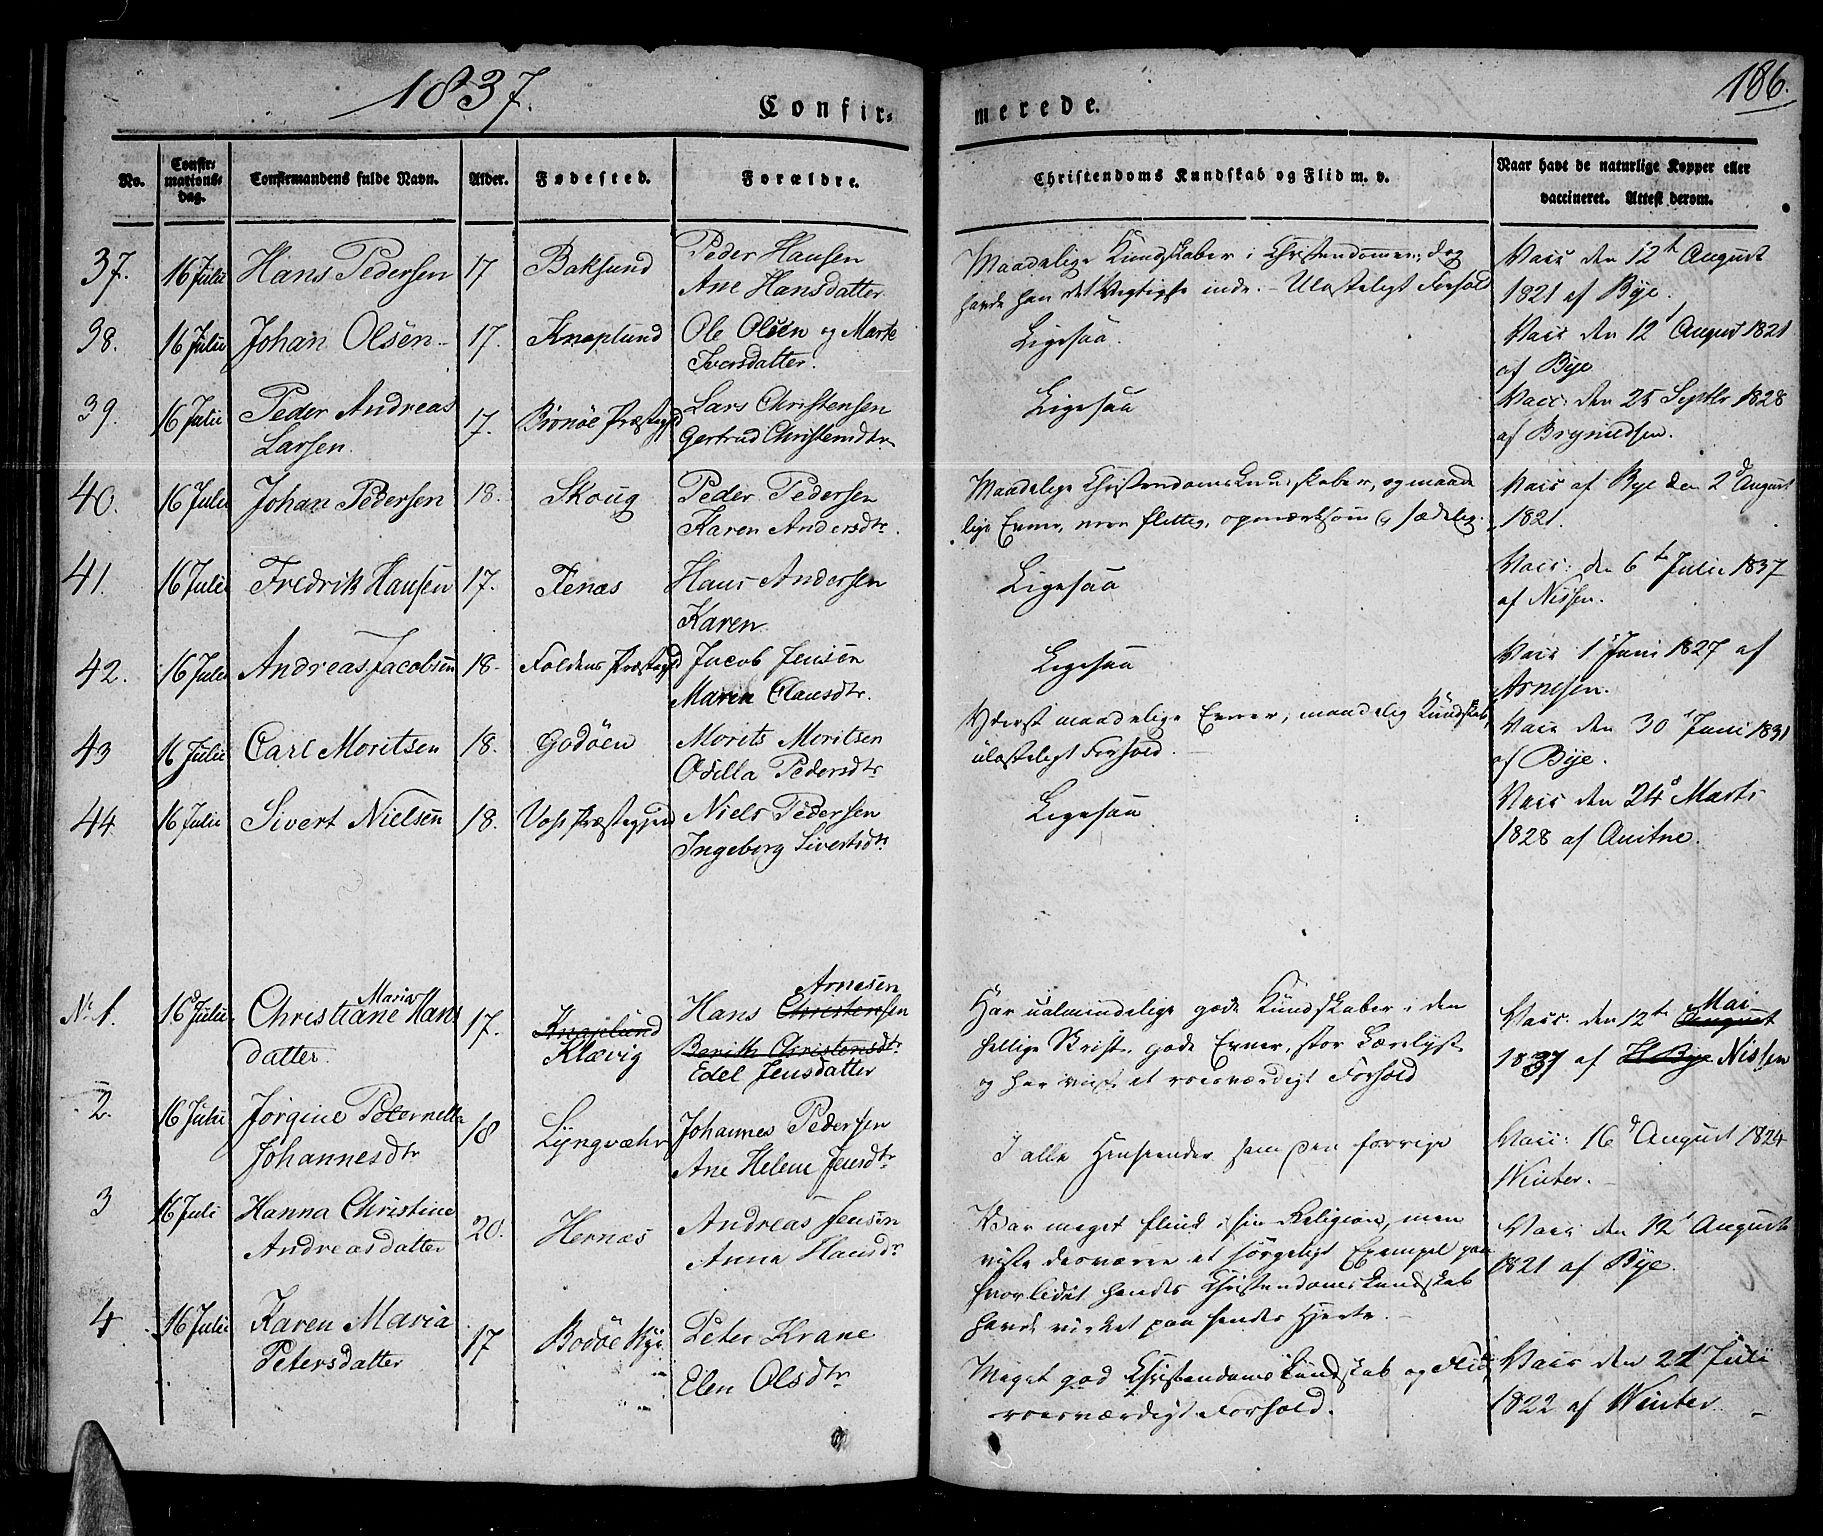 1837.
Confir-
merede.
186.
No.
Confir-
mations-
dag.
Confirmandens fulde Navn.
Alder.
Fødested.
Forældre.
Christendoms Kundskab og Flid m. v.
Naar havt de naturlige Kopper eller
vaccineret. Attest derom.
37. 16 Julii Hans Pedersen 17 Baksund Peder Hansen
Ane Hansdatter
Maadelige Kundskaber i Christendommen; dog
havde han det Vigtigste inde. - Ulasteligt Forhold
Vacc den 12te August
1821 af Bye.
38. 16 Julii Johan Olsen 17. Knaplund Ole Olsen og Marte
Iversdatter.
Ligesaa.
Vacc den 12t August 1821
af Bye
39. 16 Julii Peder Andreas 17. Brønøe Præstegjd Lars Christensen
Larsen. Gertrud Christensdtr
Ligesaa
Vacc. den 25 Septbr 1828
af Brynildsen.
40. 16 Julii Johan Pedersen 18. Skoug Peder Pedersen
Karen Andersdtr.
Maadelige Christendomskundskaber, og maade
lige Evner, men flittig, opmærksom og sædelig.
Vacc af Bye den 2d August
1821.
41. 16 Julii Fredrik Hansen 17. Tenæs Hans Andersen
Karen
Ligesaa
Vacc: den 6te Julii 1837
af Nissen.
42. 16 Julii Andreas Jacobsen 18. Foldens Præstegjd Jacob Jensen
Maren Clausdtr.
Ligesaa
Vacc 1 Juni 1827 af
Arnesen.
43 16 Julii Carl Moritsen 18. Godøen Morits Moritsen
Odilla Pedersdtr
Yderst maadelige Evner, maadelig Kundskab,
ulasteligt Forhold.
Vacc den 30 Juni 1831
af Bye.
44 16 Julii Sivert Nielsen 18. Vos Præstegjeld Niels Pedersen
Ingeborg Sivertsdtr
Ligesaa
Vacc den 24d Marts
1828 af
No 1. 16 Julii Christiane Maria Hans 17. Knaplund Hans Christensen Arnesen
datter. Klævig Berith Christensdtr
Edel Jensdatter
Har ualmindelige gode Kundskaber i den
hellige Skrift, gode Evner, stor Lærelyst
og har viist et roesværdigt Forhold
Vacc. den 12te August Mai
1837 af H Bye Nissen
2. 16 Julii Jørgine Peternella 18 Lyngvæhr Johannes Pedersen
Johannesdtr Ane Helene Jensdtr
I alle Henseender som den forrige
Vacc: 16d August 1824
Winter.
3 16 Juli Hanna Christine 20. Hernæs Andreas Jensen
Andreasdatter Anna Hansdr
Var meget flink i sin Religion, men
viste desværre et sørgeligt Exempel paa
hvorlidet hendes Christendomskundskab
havde virket paa hendes Hjerte.
Vacc den 12t August
1821 af Bye.
4 16 Julii Karen Maria 17 Bodøe Bye Peter Krane
Petersdatter Elen Olsdtr
Meget god Christendomskundskab og Flid,
roesværdigt Forhold.
Vacc den 21 Juli
1822 af Winter